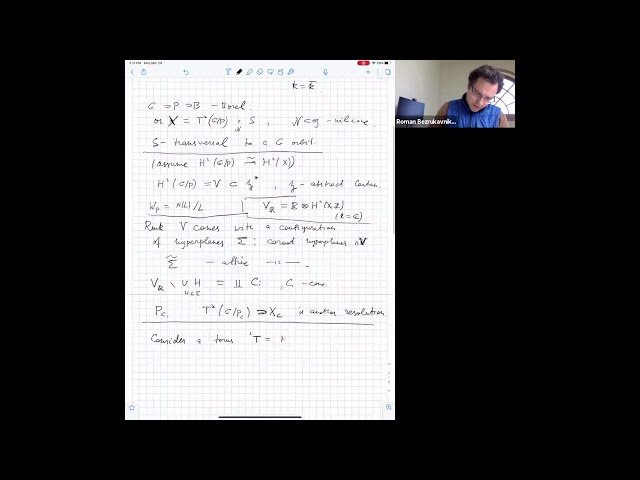 k = k̄
G ⊃ P ⊃ B - Borel
or X = T*(G/P) ×_N S, N ⊂ g - nilcone
S - transversal to a G orbit.
(assume H²(G/P) ≅ H²(X))
H²(G/P) = V ⊂ h*, h - abstract Cartan
W_P = N(L)/L | V_R = R ⊗ H²(X, Z)
(k = C)
Rmk V comes with a configuration
of hyperplanes Σ: coroot hyperplanes ∩ V
Σ̃ - affine —"—.
V_R \ ∪ H = ∐ C_i, C_i - cone
H∈Σ
P_C, T*(G/P_C) ⊃ X_C is another resolution
Consider a torus T =
Roman Bezrukavnik...